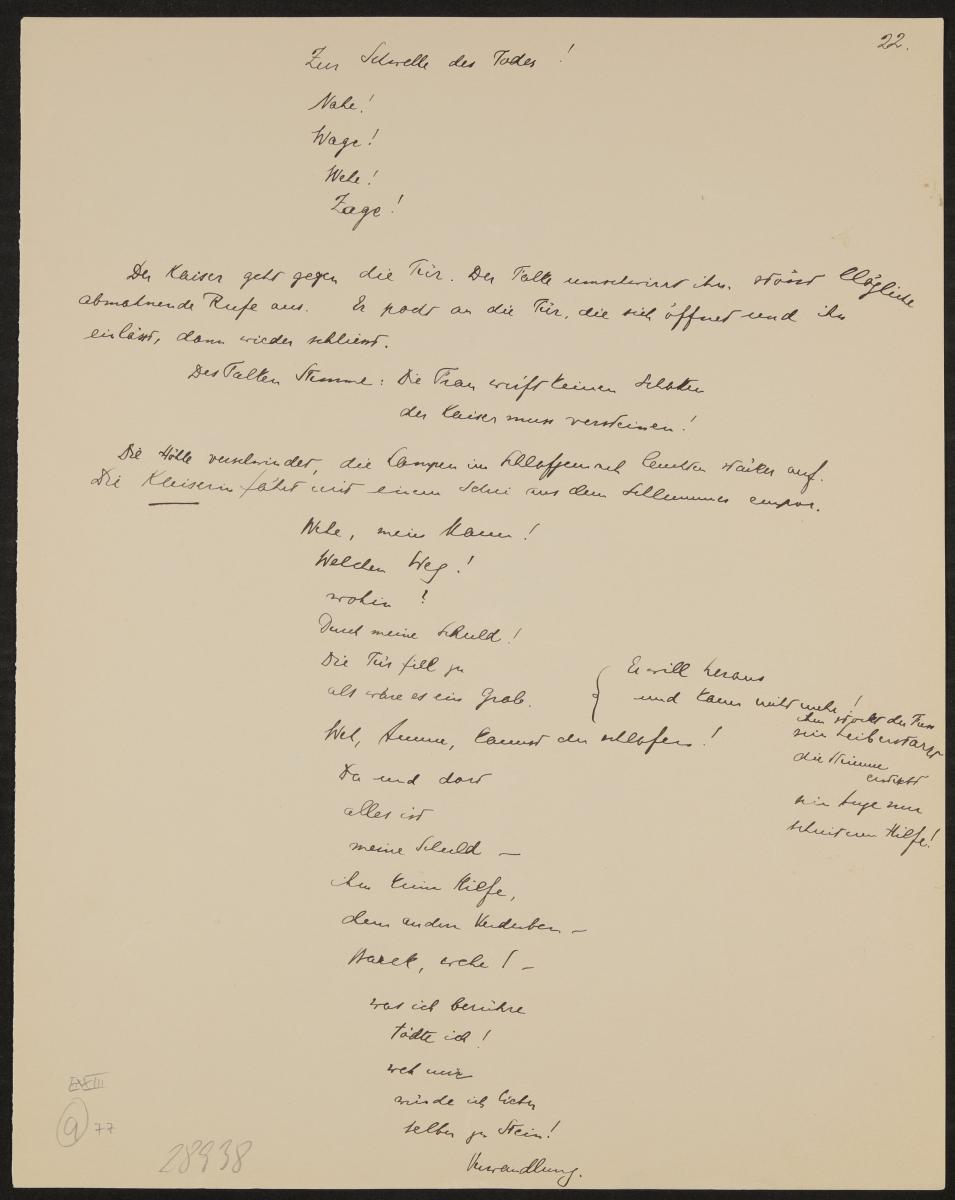 22.
Zur Schwelle des Todes!
Nahe!
Wage!
Wehe!
Zage!
Der Kaiser geht gegen die Tür. Der Falke umschwirrt ihn, stösst klägliche
abmahnende Rufe aus. Er pocht an die Tür, die sich öffnet und ihn
einlässt, dann wieder schliesst.
Des Falken Stimme: Die Frau wirft keinen Schatten
der Kaiser muss versteinen!
Die Höhle verschwindet, die Lampen im Schlafgemach leuchten stärker auf.
Die Kaiserin fährt mit einem Schrei aus dem Schlummer empor.
Wehe, mein Mann!
Welchen Weg!
wohin?
Durch meine Schuld!
Die Tür fiel zu
als wäre es ein Grab.
Er will heraus
und kann nicht mehr!
ihm stockt der Fuss
sein Leib erstarrt
die Stimme
erstickt
sein Auge nur
schreit um Hilfe!
Weh, Amme, kannst du schlafen!
Da und dort
alles ist
meine Schuld —
ihm keine Hilfe,
dem andern Verderben —
Barak, wehe! —
was ich berühre
tödte ich!
weh mir
würde ich lieber
selber zu Stein!
Verwandlung.
a 77
28938